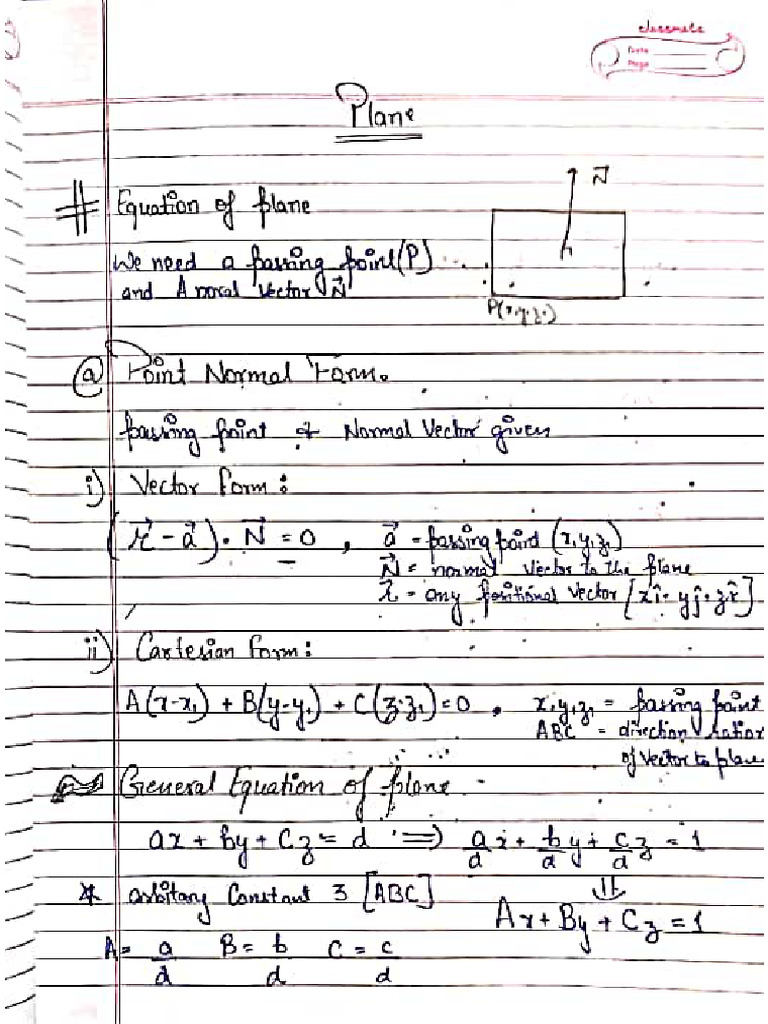 classmate
Date
Page
Plane
# Equation of plane
N⃗
We need a passing point (P)
and A normal vector N⃗
P(x,y,z,)
(a) Point Normal Form.
passing point & Normal Vector given
i) Vector form:
(r⃗ - a⃗) · N⃗ = 0 , a⃗ - passing point (x₁y₁z₁)
N⃗ = normal vector to the plane
r⃗ - any positional vector [xî · yĵ · zk̂]
ii) Cartesian form:
A(x-x₁) + B(y-y₁) + C(z-z₁) = 0 , x₁y₁z₁ = passing point
ABC = direction ration
of vector to plane
General Equation of plane
ax + by + Cz = d ⟹ a/d x + b/d y + c/d z = 1
* arbitary Constant 3 [ABC]
⇓
Ax + By + Cz = 1
A = a/d B = b/d C = c/d